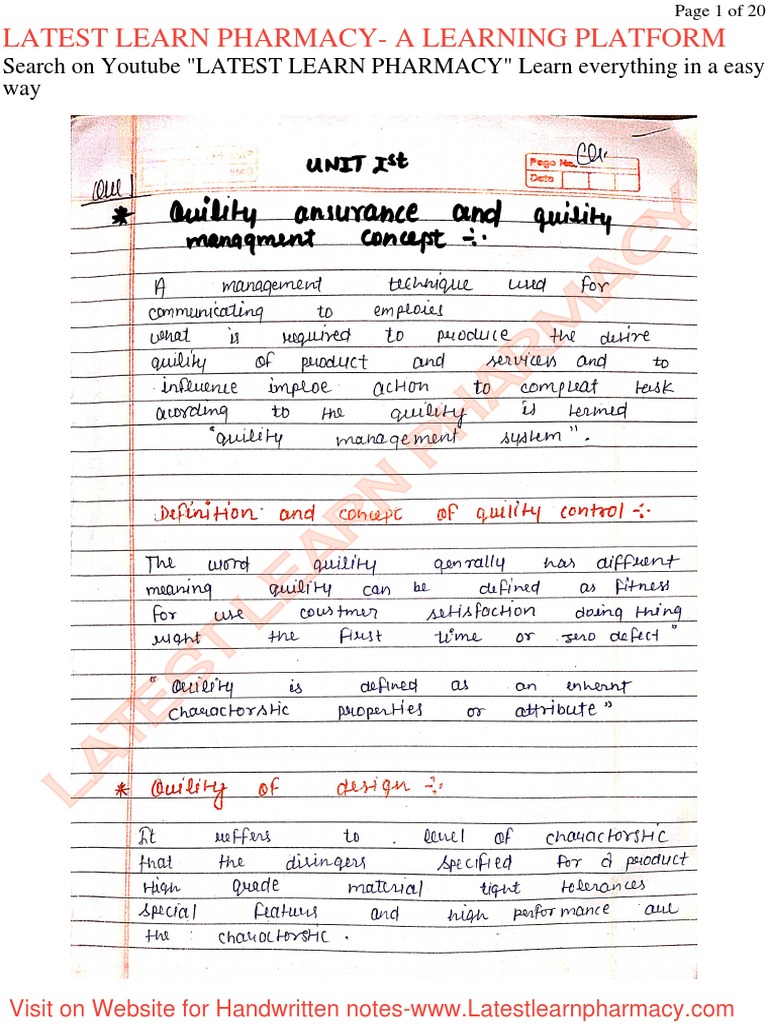 Page 1 of 20
LATEST LEARN PHARMACY- A LEARNING PLATFORM
Search on Youtube "LATEST LEARN PHARMACY" Learn everything in a easy
way
UNIT Ist
Page No.
Date
* Quility ansurance and quility
managment concept ÷.
A management technique used for
communicating to emploies
what is required to produce the desire
quility of product and services and to
influence imploe action to compleat task
acording to the quility is termed
"quility management system".
Definition and concept of quility control ÷.
The word quility genrally has diffrent
meaning quility can be defined as fitness
for use coustmer setisfaction doing thing
right the first time or zero defect"
"Quility is defined as an inhernt
charactorstic properties or attribute"
* Quility of design ÷.
It reffers to level of charactorstic
that the disingers specified for a product
High grade material tight tolerances
special features and high performance are
the charactorstic.
LATEST LEARN PHARMACY
Visit on Website for Handwritten notes-www.Latestlearnpharmacy.com